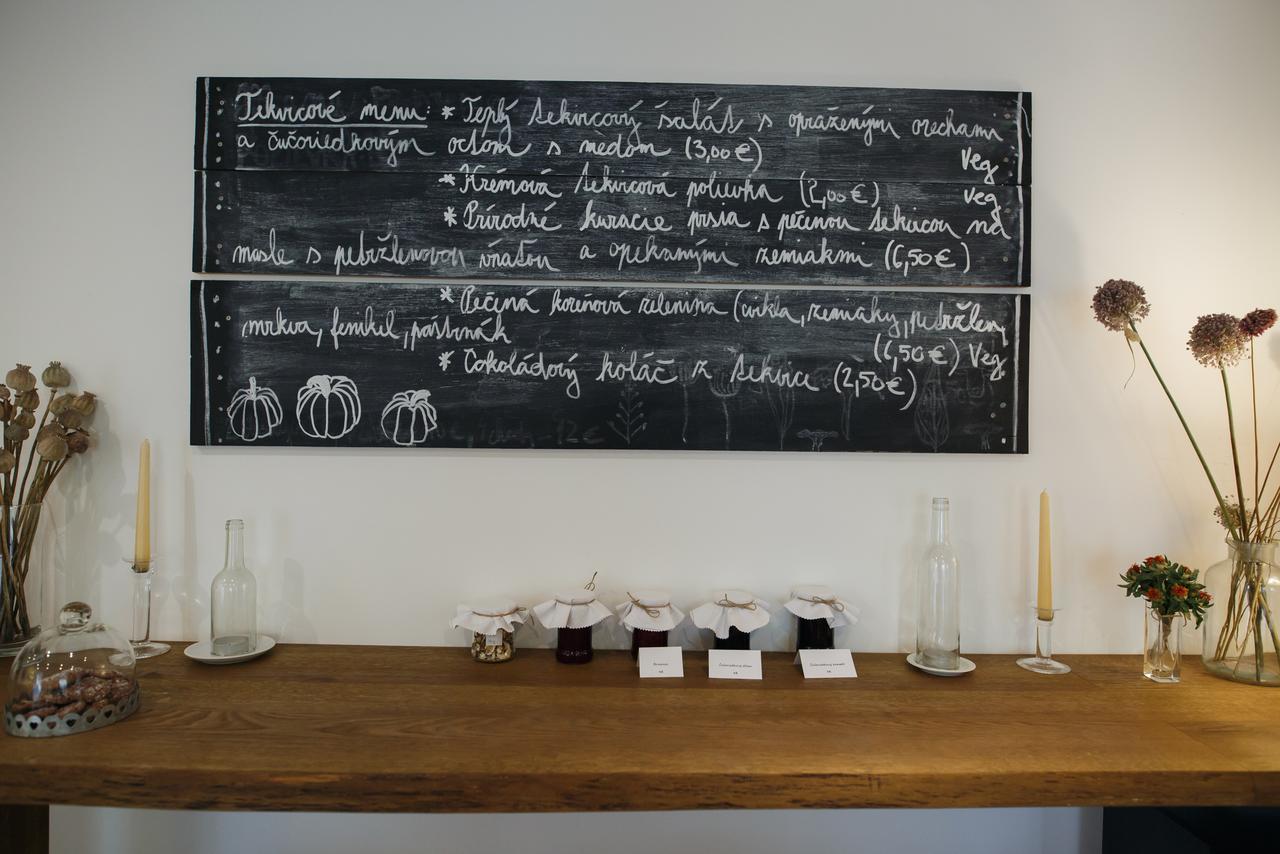 Tekvicové menu: * Teplý tekvicový šalát s opraženými orechami
a čučoriedkovým octom s medom (3,00€)
Veg
* Krémová tekvicová polievka (2,00€) Veg
* Prírodné kuracie prsia s pečenou tekvicou na
masle s petržlenovou vňaťou a opekanými zemiakmi (6,50€)
* Pečená koreňová zelenina (cvikla, zemiaky, petržlen,
mrkva, fenikel, paštrnák
(6,50€) Veg
* Čokoládový koláč z tekvice (2,50€)